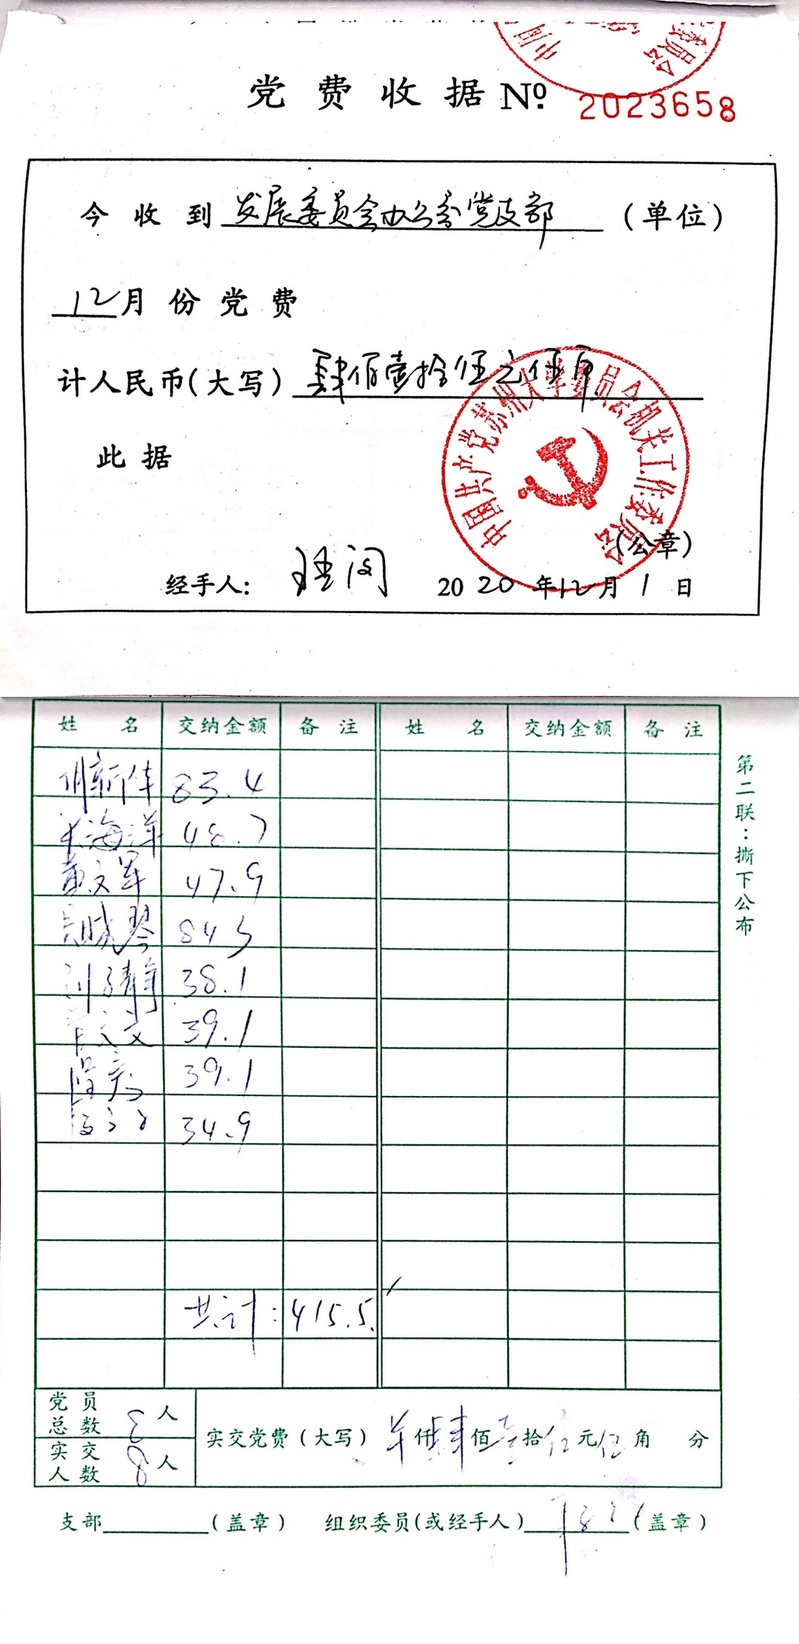 党费收据 № 2023658
今收到 发展委员会办公室党支部 (单位)
12月份党费
计人民币(大写) 肆佰壹拾伍元伍角
此据
中国共产党苏州大学委员会机关工作委员会
(公章)
经手人: 2020年12月1日
姓名 交纳金额 备注 姓名 交纳金额 备注
83.4
海洋 48.7
黄文军 47.9
吴晓琴 84.3
刘子静 38.1
39.1
39.1
34.9
共计: 415.5
党员总数 8人
实交人数 8人
实交党费(大写) 仟肆佰壹拾伍元伍角 分
支部 (盖章) 组织委员(或经手人) (盖章)
第二联:撕下公布